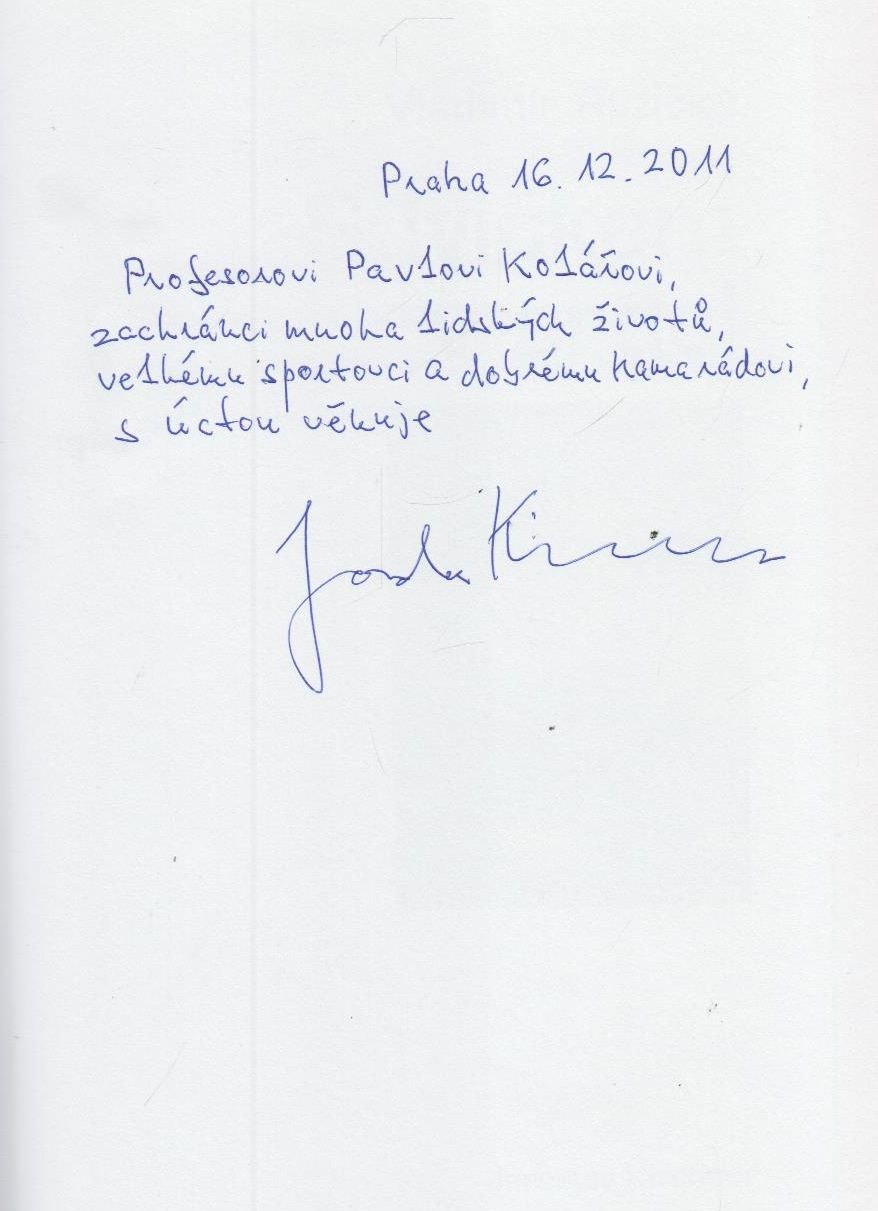 Praha 16. 12. 2011
Profesorovi Pavlovi Kolářovi,
zachránci mnoha lidských životů,
velkému sportovci a dobrému kamarádovi,
s úctou věnuje